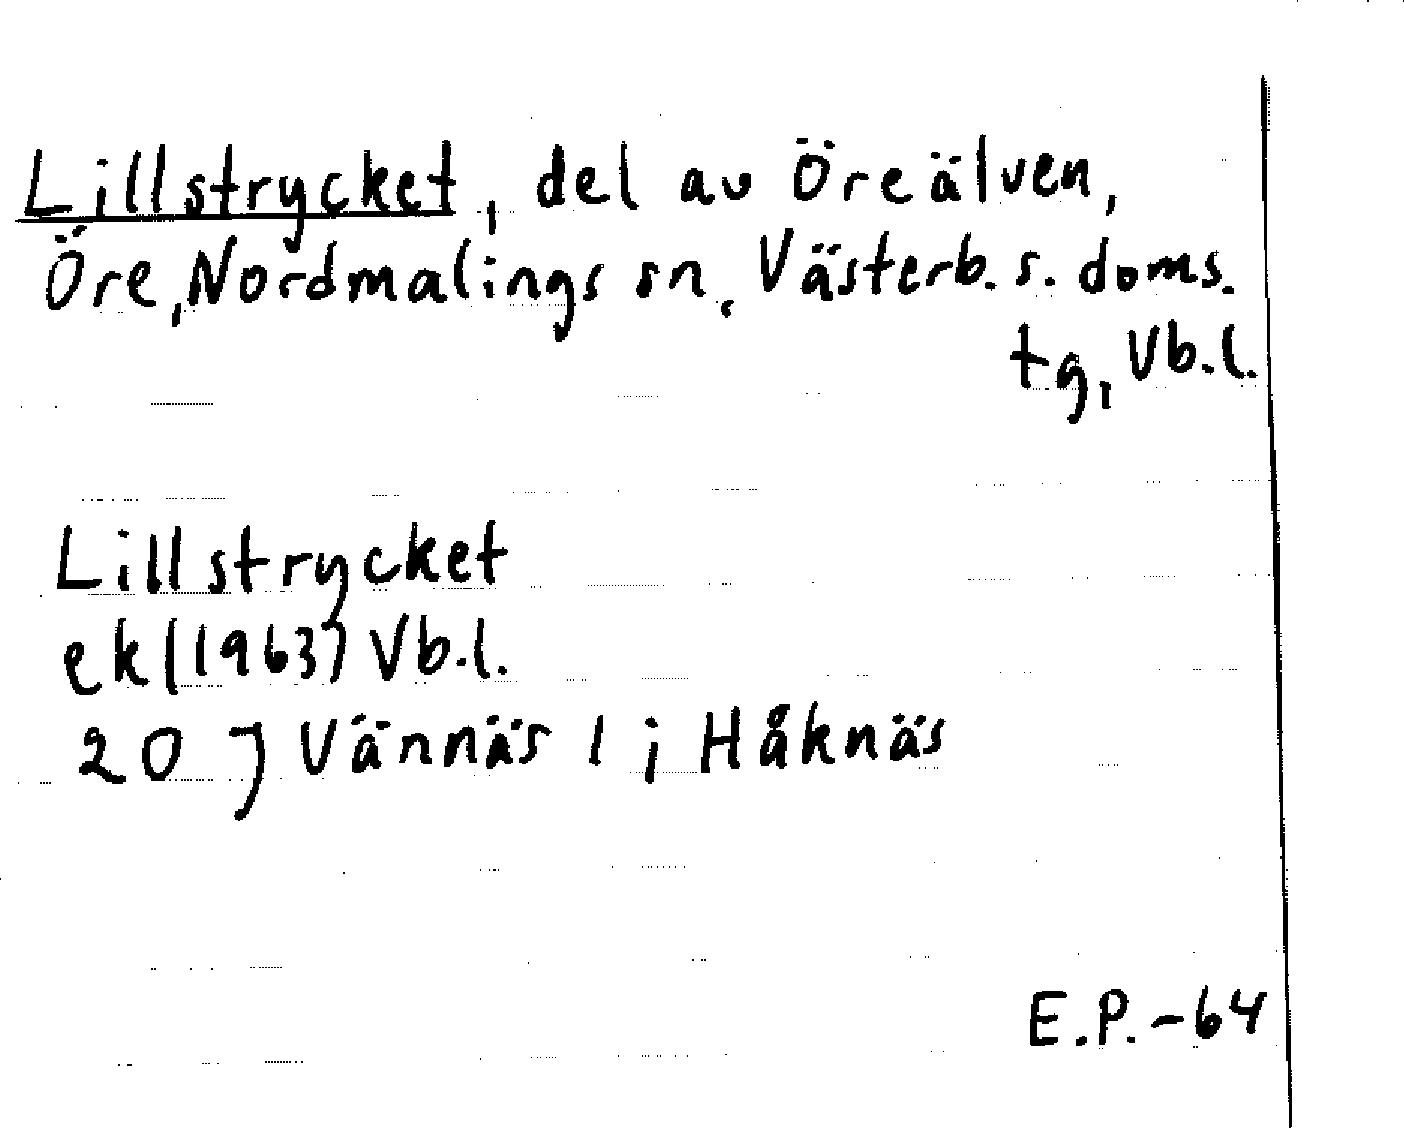 Lillstrycket, del av Öreälven,
Öre, Nordmalings sn, Västerb. s. doms.
tg, Vb.l.
Lillstrycket
ek (1963) Vb.l.
20 J Vännäs 1 i Håknäs
E.P.-64